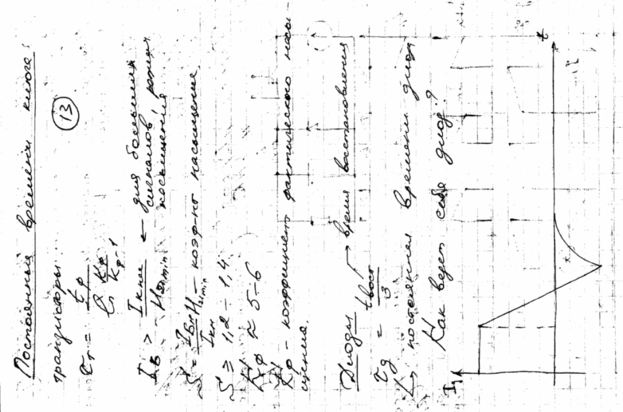 Постоянные времени ключа:
13
транзисторы
τт = τβ / ln Kф / Kф-1
Iб > Iкнн / H21эmin ← для больших сигналов, режим насыщения
S = Iбн H21эmin / Iкн - коэф-нт насыщения
S ≥ 1,2 - 1,4
Kф ≈ 5-6
Kф - коэффициент фактического насы-
щения.
Диоды
tвост → время восстановления
τд = tвост / 3
постоянная времени диода
Как ведет себя диод?
I
t